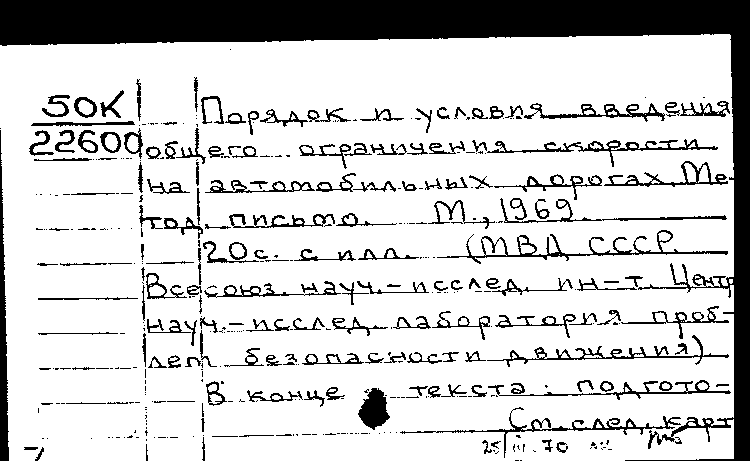 50К
22600
Порядок и условия введения
общего ограничения скорости
на автомобильных дорогах. Ме-
тод. письмо. М., 1969.
20с. с илл. (МВД СССР.
Всесоюз. науч.-исслед. ин-т. Центр
науч.-исслед. лаборатория проб-
лем безопасности движения).
В конце текста: подгото-
См. след. карт
25/III.70